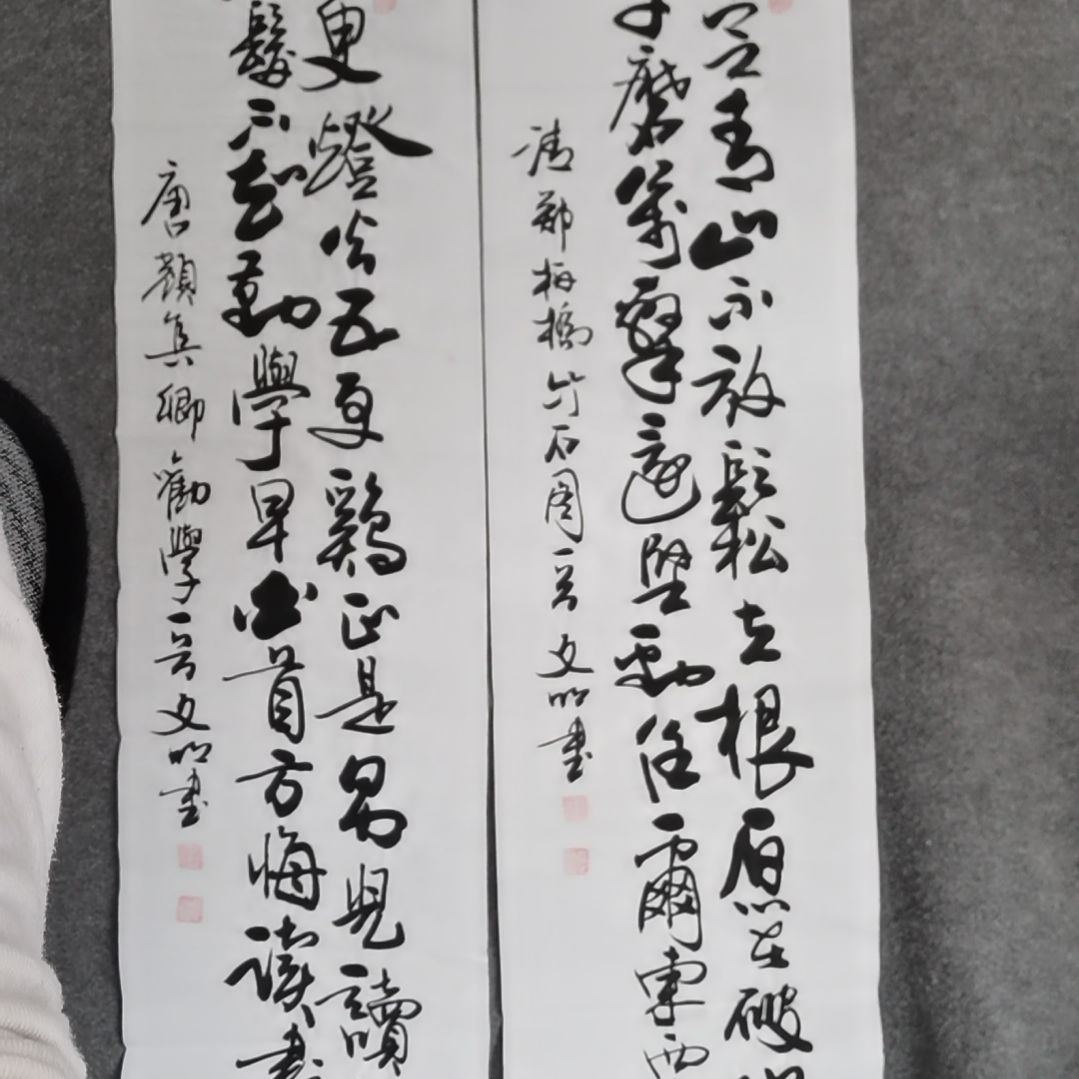 定青山不放鬆立根原在破
千磨萬擊還堅勁任爾東西
清鄭板橋竹石圖一首文明書
更燈火五更雞正是男兒讀
髮不知勤學早白首方悔讀書
唐顏真卿勸學一首文明書